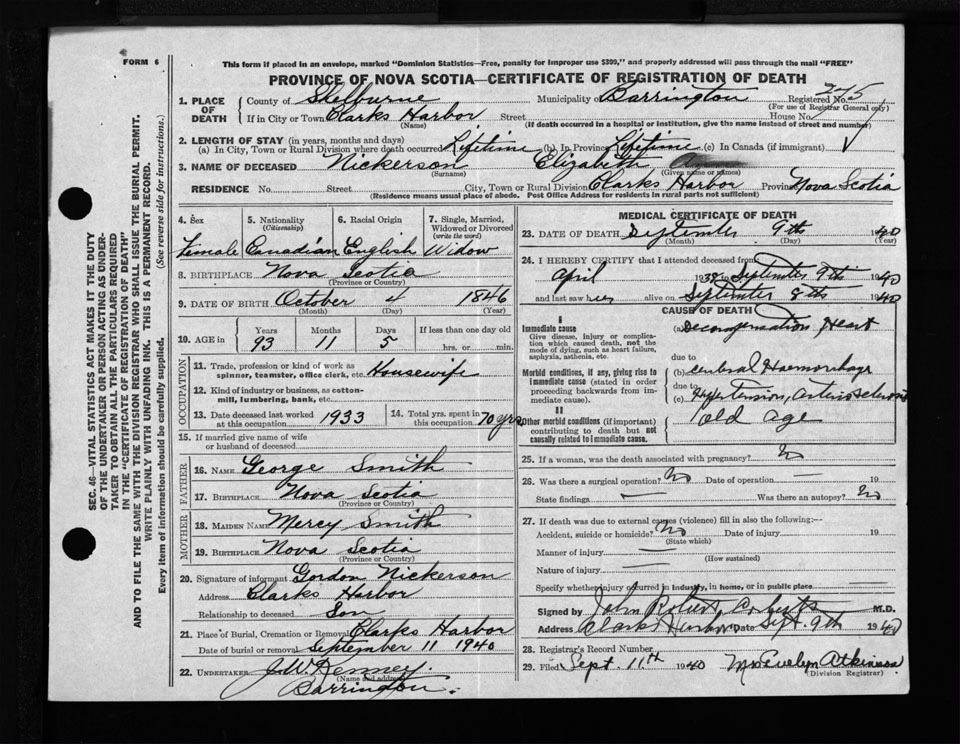 FORM 6
This form if placed in an envelope, marked "Dominion Statistics—Free, penalty for improper use $300," and properly addressed will pass through the mail "FREE"
PROVINCE OF NOVA SCOTIA—CERTIFICATE OF REGISTRATION OF DEATH
SEC. 46—VITAL STATISTICS ACT MAKES IT THE DUTY
OF THE UNDERTAKER OR PERSON ACTING AS UNDER-
TAKER TO OBTAIN ALL THE PARTICULARS REQUIRED
IN THE "CERTIFICATE OF REGISTRATION OF DEATH"
AND TO FILE THE SAME WITH THE DIVISION REGISTRAR WHO SHALL ISSUE THE BURIAL PERMIT.
WRITE PLAINLY WITH UNFADING INK. THIS IS A PERMANENT RECORD.
Every item of information should be carefully supplied. (See reverse side for instructions.)
1. PLACE OF DEATH
County of Shelburne Municipality of Barrington Registered No. 275
(For use of Registrar General only)
If in City or Town Clarks Harbor Street House No.
(Name) (If death occurred in a hospital or institution, give the name instead of street and number)
2. LENGTH OF STAY (in years, months and days)
(a) In City, Town or Rural Division where death occurred Lifetime (b) In Province Lifetime (c) In Canada (if immigrant)
3. NAME OF DECEASED Nickerson Elizabeth
(Surname) (Given name or names)
RESIDENCE No. Street City, Town or Rural Division Clarks Harbor Province Nova Scotia
(Residence means usual place of abode. Post Office Address for residents in rural parts not sufficient)
4. Sex Female
5. Nationality (Citizenship) Canadian
6. Racial Origin English
7. Single, Married, Widowed or Divorced (write the word) Widow
8. BIRTHPLACE Nova Scotia
(Province or Country)
9. DATE OF BIRTH October 4 1846
(Month) (Day) (Year)
10. AGE in Years 93 Months 11 Days 5 If less than one day old hrs. or min.
OCCUPATION
11. Trade, profession or kind of work as spinner, teamster, office clerk, etc. Housewife
12. Kind of industry or business, as cotton-mill, lumbering, bank, etc.
13. Date deceased last worked at this occupation 1933
14. Total yrs. spent in this occupation 70 yrs
15. If married give name of wife or husband of deceased
FATHER
16. NAME George Smith
17. BIRTHPLACE Nova Scotia
(Province or Country)
MOTHER
18. MAIDEN NAME Mercy Smith
19. BIRTHPLACE Nova Scotia
(Province or Country)
20. Signature of informant Gordon Nickerson
Address Clarks Harbor
Relationship to deceased Son
21. Place of Burial, Cremation or Removal Clarks Harbor
Date of burial or removal September 11 1940
22. UNDERTAKER J.W. Kenney
(Name and address)
Barrington.
MEDICAL CERTIFICATE OF DEATH
23. DATE OF DEATH September 9th 1940
(Month) (Day) (Year)
24. I HEREBY CERTIFY that I attended deceased from
April 1938 to September 9th 1940
and last saw her alive on September 8th 1940
CAUSE OF DEATH
I
Immediate cause
Give disease, injury or complication which caused death, not the mode of dying, such as heart failure, asphyxia, asthenia, etc.
(a) Decompensation Heart
due to
Morbid conditions, if any, giving rise to immediate cause (stated in order proceeding backwards from immediate cause).
(b) Cerebral Haemorrhage
due to
(c) Hyper Tension, arteriosclerosis
II
Other morbid conditions (if important) contributing to death but not causally related to immediate cause.
old age
25. If a woman, was the death associated with pregnancy? No
26. Was there a surgical operation? No Date of operation — 19
State findings — Was there an autopsy? No
27. If death was due to external causes (violence) fill in also the following:—
Accident, suicide or homicide? No Date of injury 19
(State which)
Manner of injury —
(How sustained)
Nature of injury —
Specify whether injury occurred in industry, in home, or in public place
Signed by John Robert M.D.
Address Clarks Harbor Date Sept. 9th 1940
28. Registrar's Record Number
29. Filed Sept 11th 1940 Mrs Evelyn Atkinson
(Division Registrar)